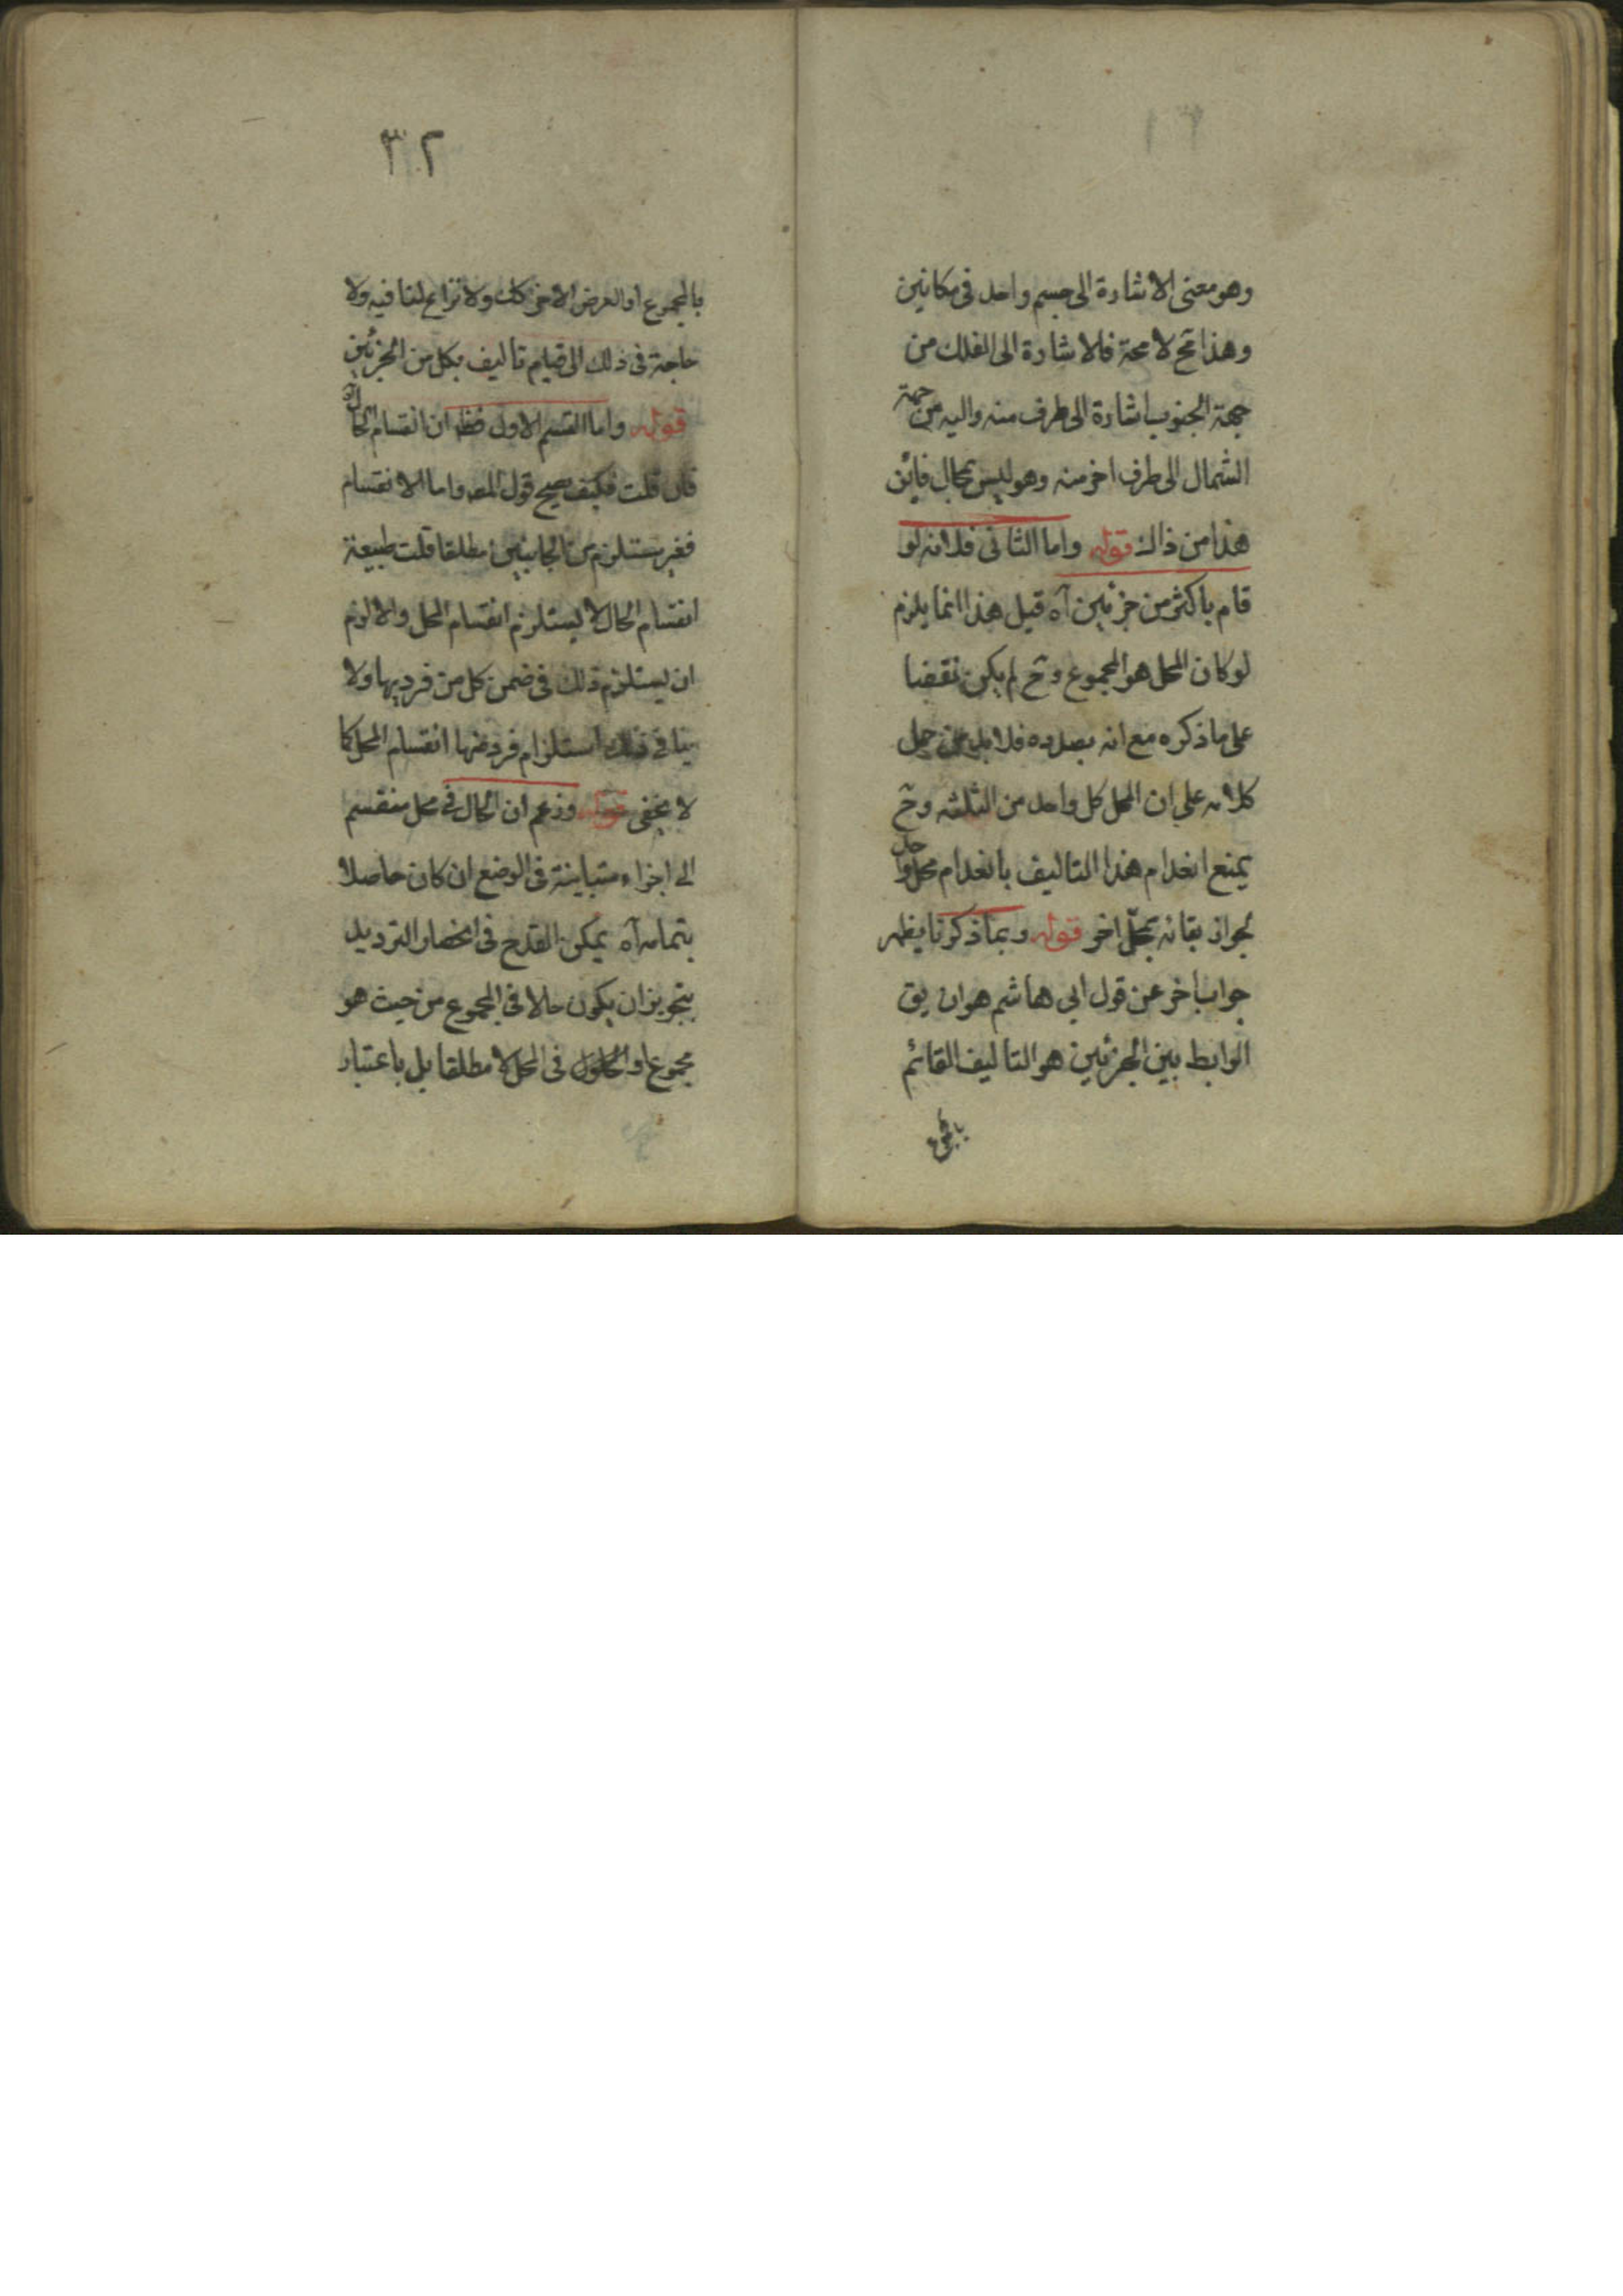 وهو معنى الاشارة الى جسم واحد فى مكانين
وهذا مح لا محة فالاشارة الى الفلك من
جهة الجنوب اشارة الى طرف منه واليه من جهة
الشمال الى طرف اخر منه وهو ليس بمحال فاين
هذا من ذاك قوله واما الثانى فلانه لو
قام باكثر من جزئين آه قيل هذا انما يلزم
لو كان المحل هو المجموع وح لم يكن نقضا
على ما ذكره مع انه بصدده فلا بد من حمل
كلامه على ان المحل كل واحد من الثلثه وح
يمنع انعدام هذا التاليف بانعدام محل واحد
لجواز بقائه بمحل اخر قوله وبما ذكرنا يظهر
جواب اخر عن قول ابى هاشم هو ان يق
الرابط بين الجزئين هو التاليف القائم
بالمجموع
٣٢
بالمجموع او العرض الاخر كك ولا نزاع لنا فيه ولا
حاجة فى ذلك الى قيام تاليف بكل من الجزئين
قوله واما القسم الاول فظ ان انقسام الحال آه
فان قلت فكيف يصح قول المص واما الانقسام
فغير مستلزم من الجانبين مطلقا قلت طبيعة
انقسام الحال لا يستلزم انقسام المحل والا لزم
ان يستلزم ذلك فى ضمن كل من فرديها ولا
ينافى ذلك استلزام فرد منها انقسام المحل كما
لا يخفى قوله وزعم ان الحال فى محل منقسم
الى اجزاء متباينة فى الوضع ان كان حاصلا
بتمامه آه يمكن القدح فى انحصار الترديد
بتجويز ان يكون حالا فى المجموع من حيث هو
مجموع او الحلول فى المحل لا مطلقا بل باعتبار